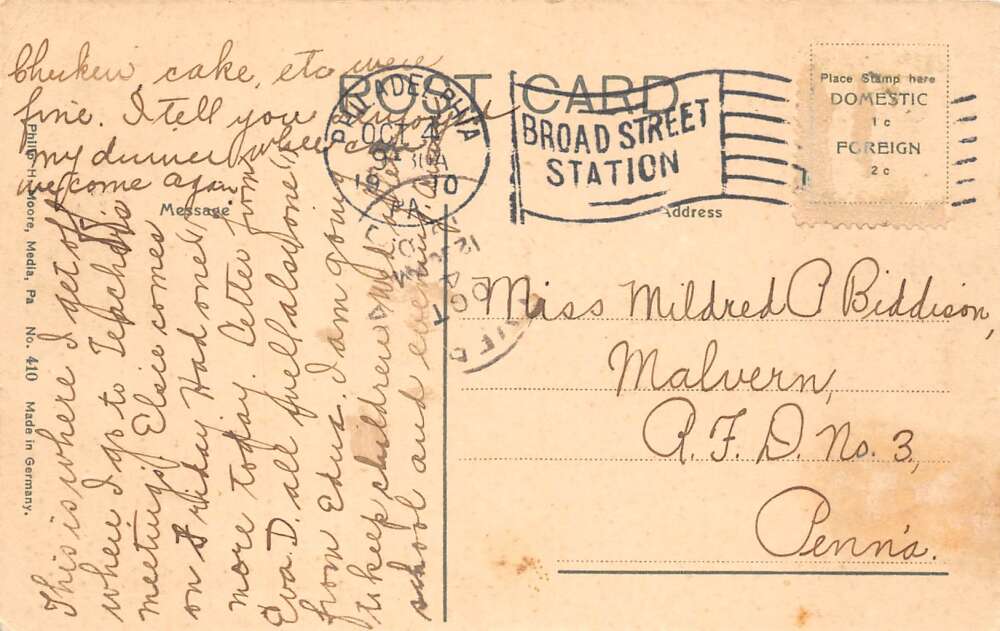 POST CARD
Philip H. Moore, Media, Pa No. 410 Made in Germany.
Message
Address
Place Stamp here
DOMESTIC
1c
FOREIGN
2c
PHILADELPHIA
OCT 4
19 10
PA.
BROAD STREET
STATION
OCT
4
12
AM
This is where I get off
where I go to
meetings. Elsie comes
on Friday. Had one
more today. Letter from
Eva D. all well also one
from Edna. I am going
to keep children
school and evening
Chicken, cake, etc were
fine. I tell you I enjoyed
my dinner
welcome again
Miss Mildred P Biddison,
Malvern,
R. F. D. No. 3,
Penn'a.